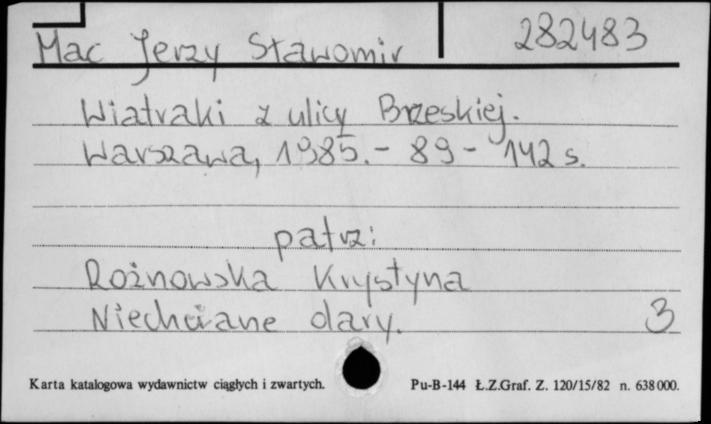 Mac Jerzy Sławomir 282483
Wiatraki z ulicy Brzeskiej.
Warszawa, 1985. - 89 - 142 s.
patrz:
Rożnowska Krystyna
Niechciane dary. 3
Karta katalogowa wydawnictw ciągłych i zwartych. Pu-B-144 Ł.Z.Graf. Z. 120/15/82 n. 638 000.